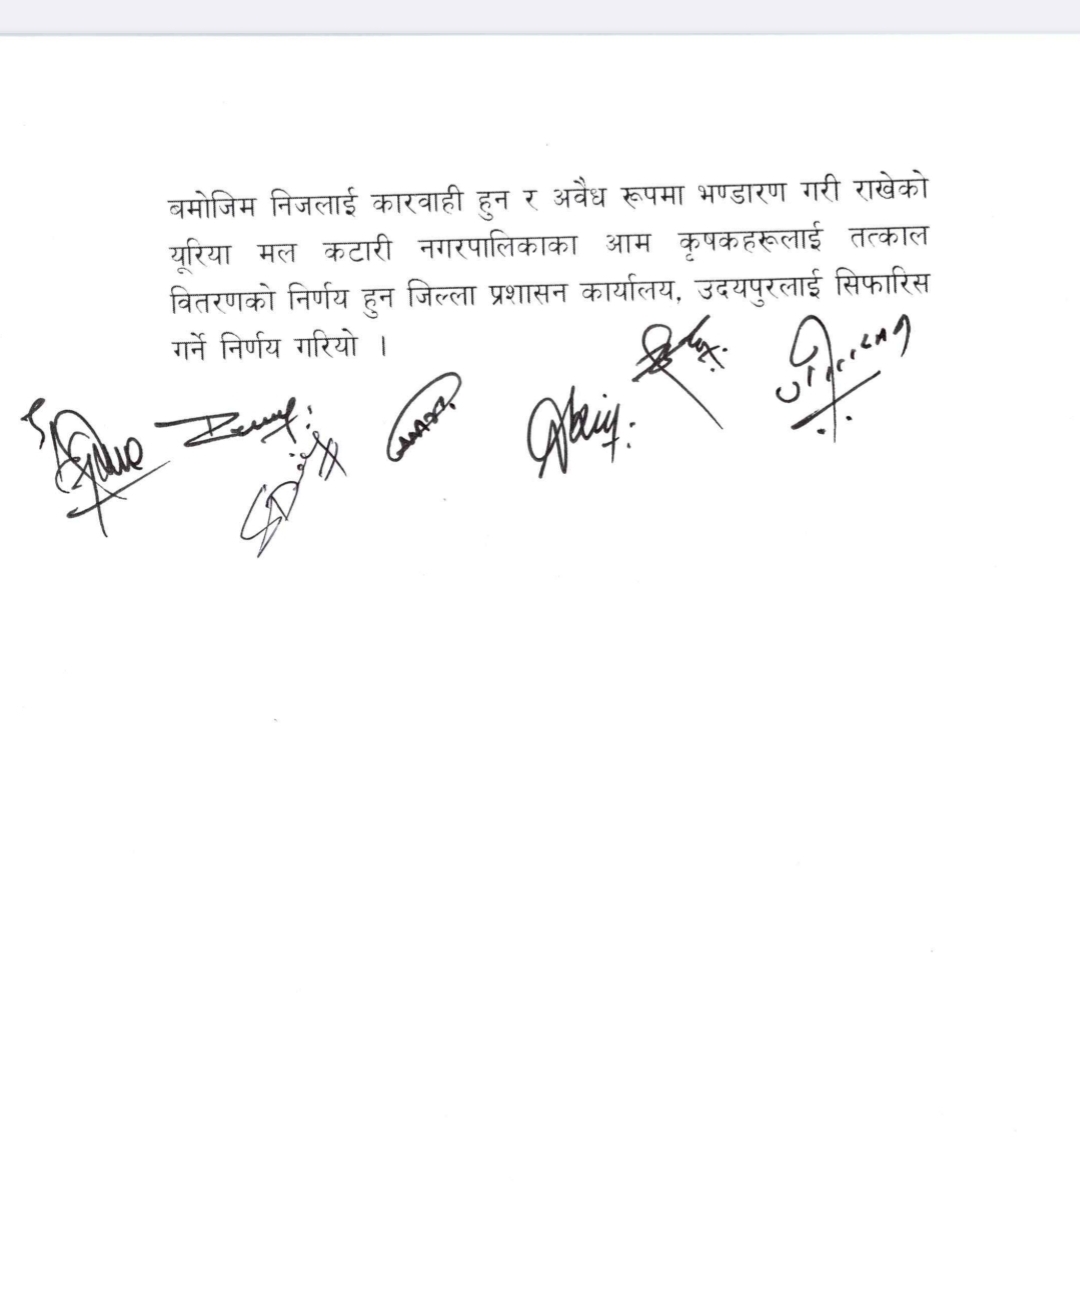 बमोजिम निजलाई कारवाही हुन र अवैध रूपमा भण्डारण गरी राखेको
यूरिया मल कटारी नगरपालिकाका आम कृषकहरूलाई तत्काल
वितरणको निर्णय हुन जिल्ला प्रशासन कार्यालय, उदयपुरलाई सिफारिस
गर्ने निर्णय गरियो ।